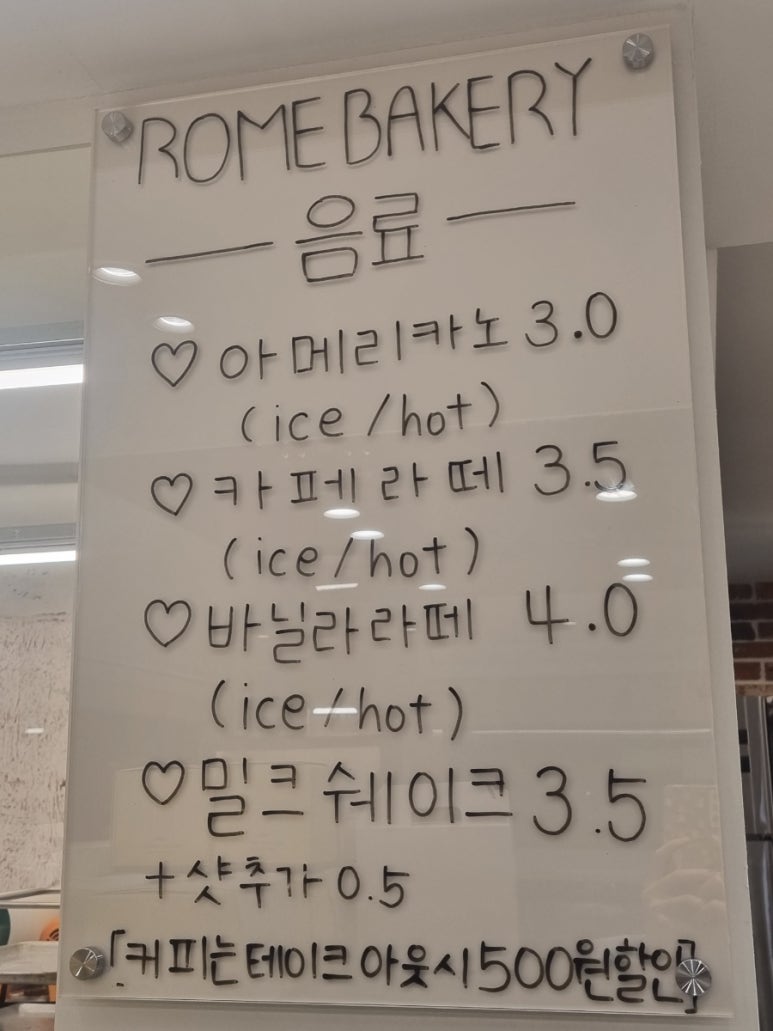 ROME BAKERY
음료
♡ 아메리카노 3.0
(ice/hot)
♡ 카페라떼 3.5
(ice/hot)
♡ 바닐라라떼 4.0
(ice/hot)
♡ 밀크쉐이크 3.5
+ 샷추가 0.5
[커피는 테이크아웃시 500원할인]